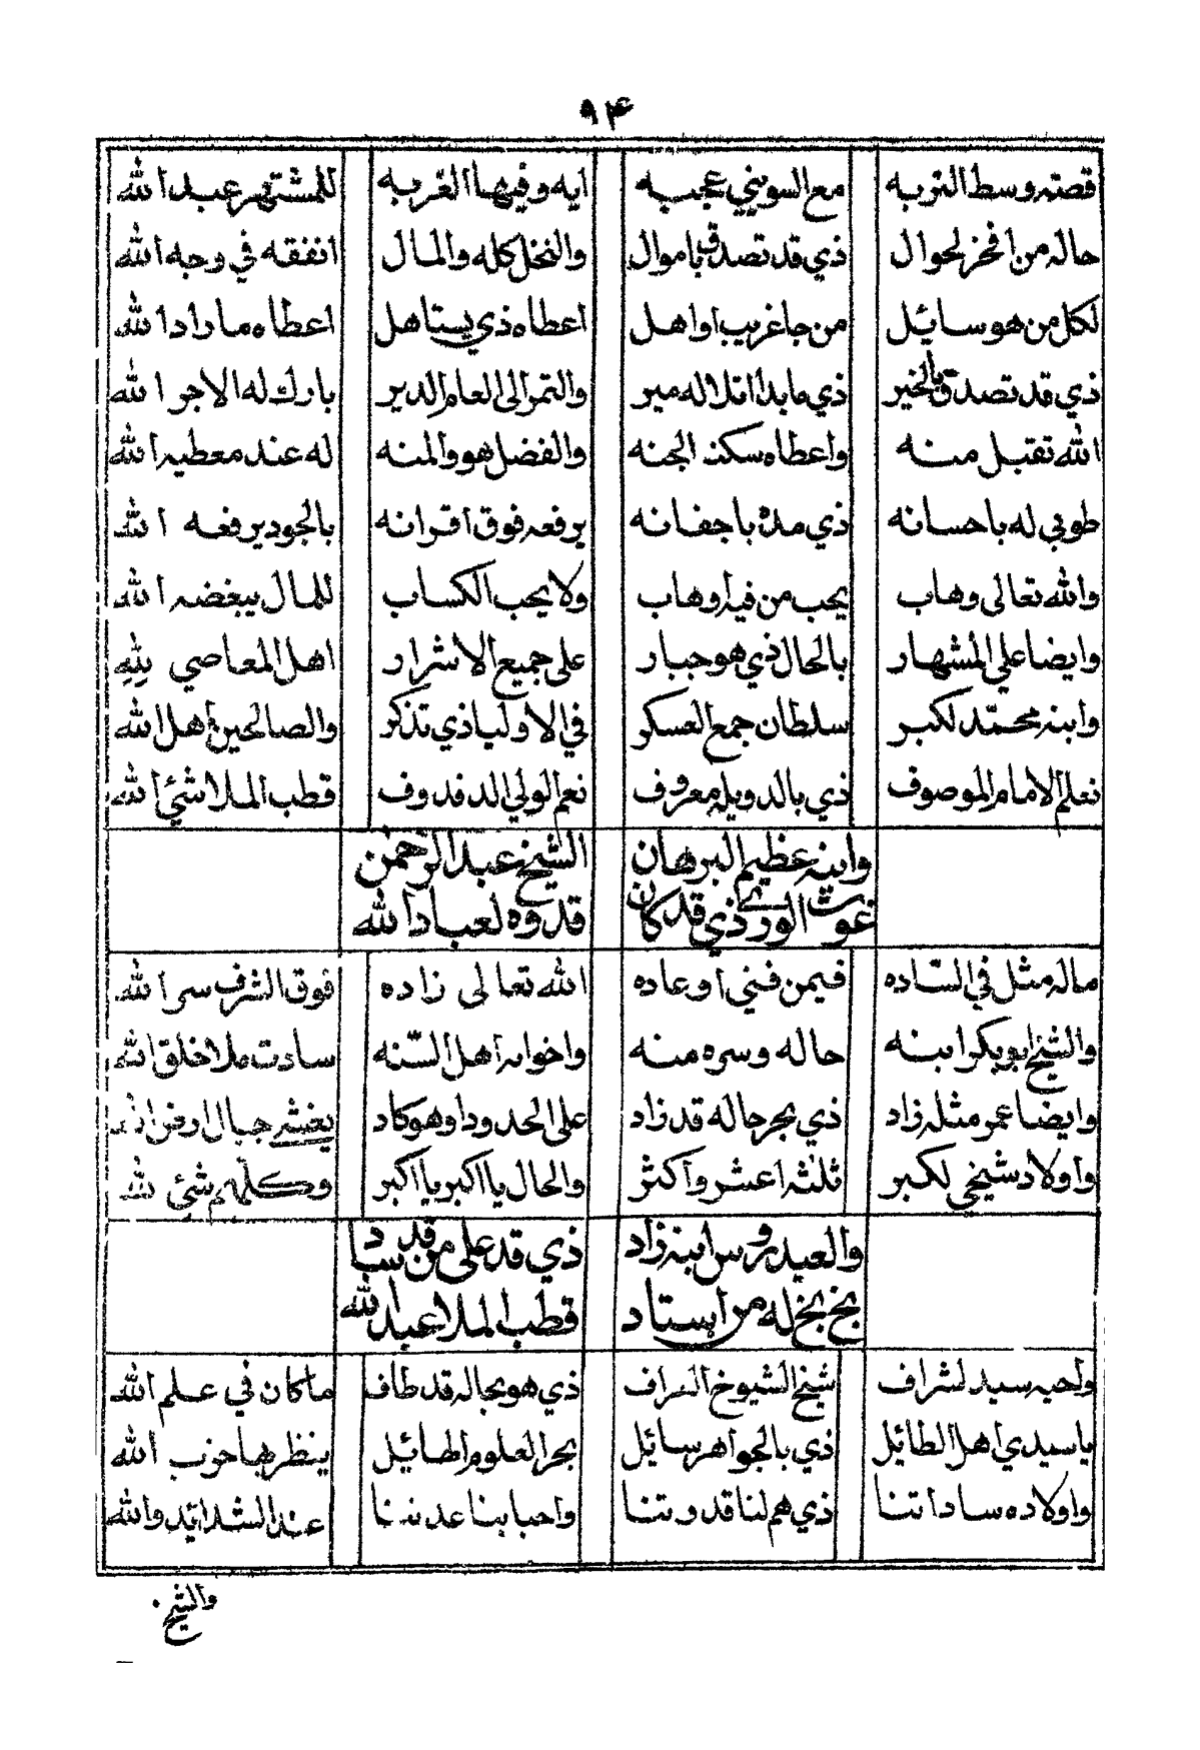 ٩٤
قصته وسط التربه مع السويني عجيبه ايه وفيها الغربه للمشتهر عبد الله
حاله من افخر لحوال ذي قد تصدق باموال والنخل كله والمال انفقه في وجه الله
لكل من هو سايل من جا غريب او اهل اعطاه ذي يستاهل اعطاه ما راد الله
ذي قد تصدق بالخير ذي ما بدا اتلا له مير والتمر الى العام الدير بارك له الاجر الله
الله تقبل منه واعطاه سكنه الجنه والفضل هو والمنه له عند معطيه الله
طوبى له باحسانه ذي مده باجفانه يرفعه فوق اقرانه بالجود يرفعه الله
والله تعالى وهاب يحب من فيه اوهاب ولا يحب الكساب للمال يبغضه الله
وايضا علي المشهار بالحال ذي هو جبار على جميع الاشرار اهل المعاصي لله
وابنه محمّد لكبر سلطان جمع العسكر في الاوليا ذي تذكر والصالحين اهل الله
نعلم الامام الموصوف ذي بالدويله معروف نعم الولي الدفدوف قطب الملا شئ الله
وابنه عظيم البرهان الشيخ عبد الرحمن
غوث الورى ذي قد كان قدوه لعباد الله
ماله مثل في السّاده فيمن فني او عاده الله تعالى زاده فوق الشرف سر الله
والشيخ ابو بكر ابنه حاله وسره منه واخوانه اهل السّنه سادت ملا خلق الله
وايضا عمر مثله زاد ذي بحر حاله قد زاد على الحدود او هو كاد جبال ارض الله
واولاد شيخي لكبر ثلثه اعشر واكثر والحال يا اكبر يا اكبر وكلّهم شئ لله
والعيدروس ابنه زاد ذي قد على من قد ساد
بخ بخ له من استاد قطب الملا عبد الله
واحيه سيد لشراف شيخ الشيوخ العراف ذي هو بحاله قد طاف ما كان في علم الله
يا سيدي اهل الطائل ذي بالجواهر سائل بحر العلوم الهائل ينظر بها حزب الله
واولاده ساداتنا ذي هم لنا قدوتنا واحبابنا عدتنا عند الشدائد والله
والشيخ